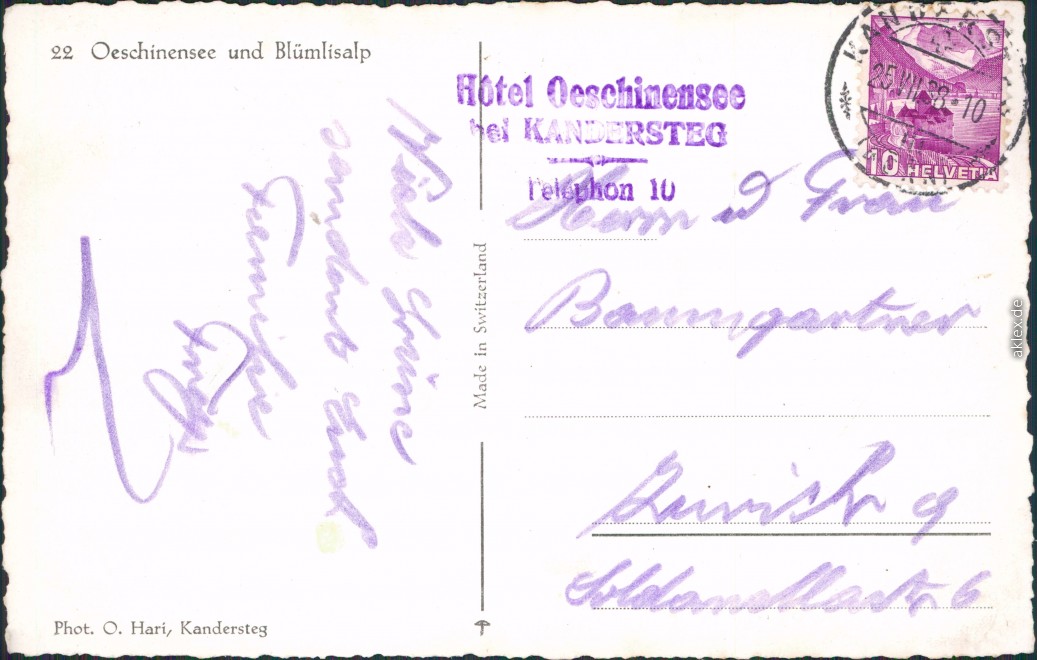 22 Oeschinensee und Blümlisalp
Hôtel Oeschinensee
bei KANDERSTEG
Telephon 10
KANDERSTEG
25.VII.38-10
10 HELVETIA
Viele Grüsse
sendet Euch
Familie
Herrn u Frau
Baumgartner
Zürich 9
Made in Switzerland
Phot. O. Hari, Kandersteg
aklex.de